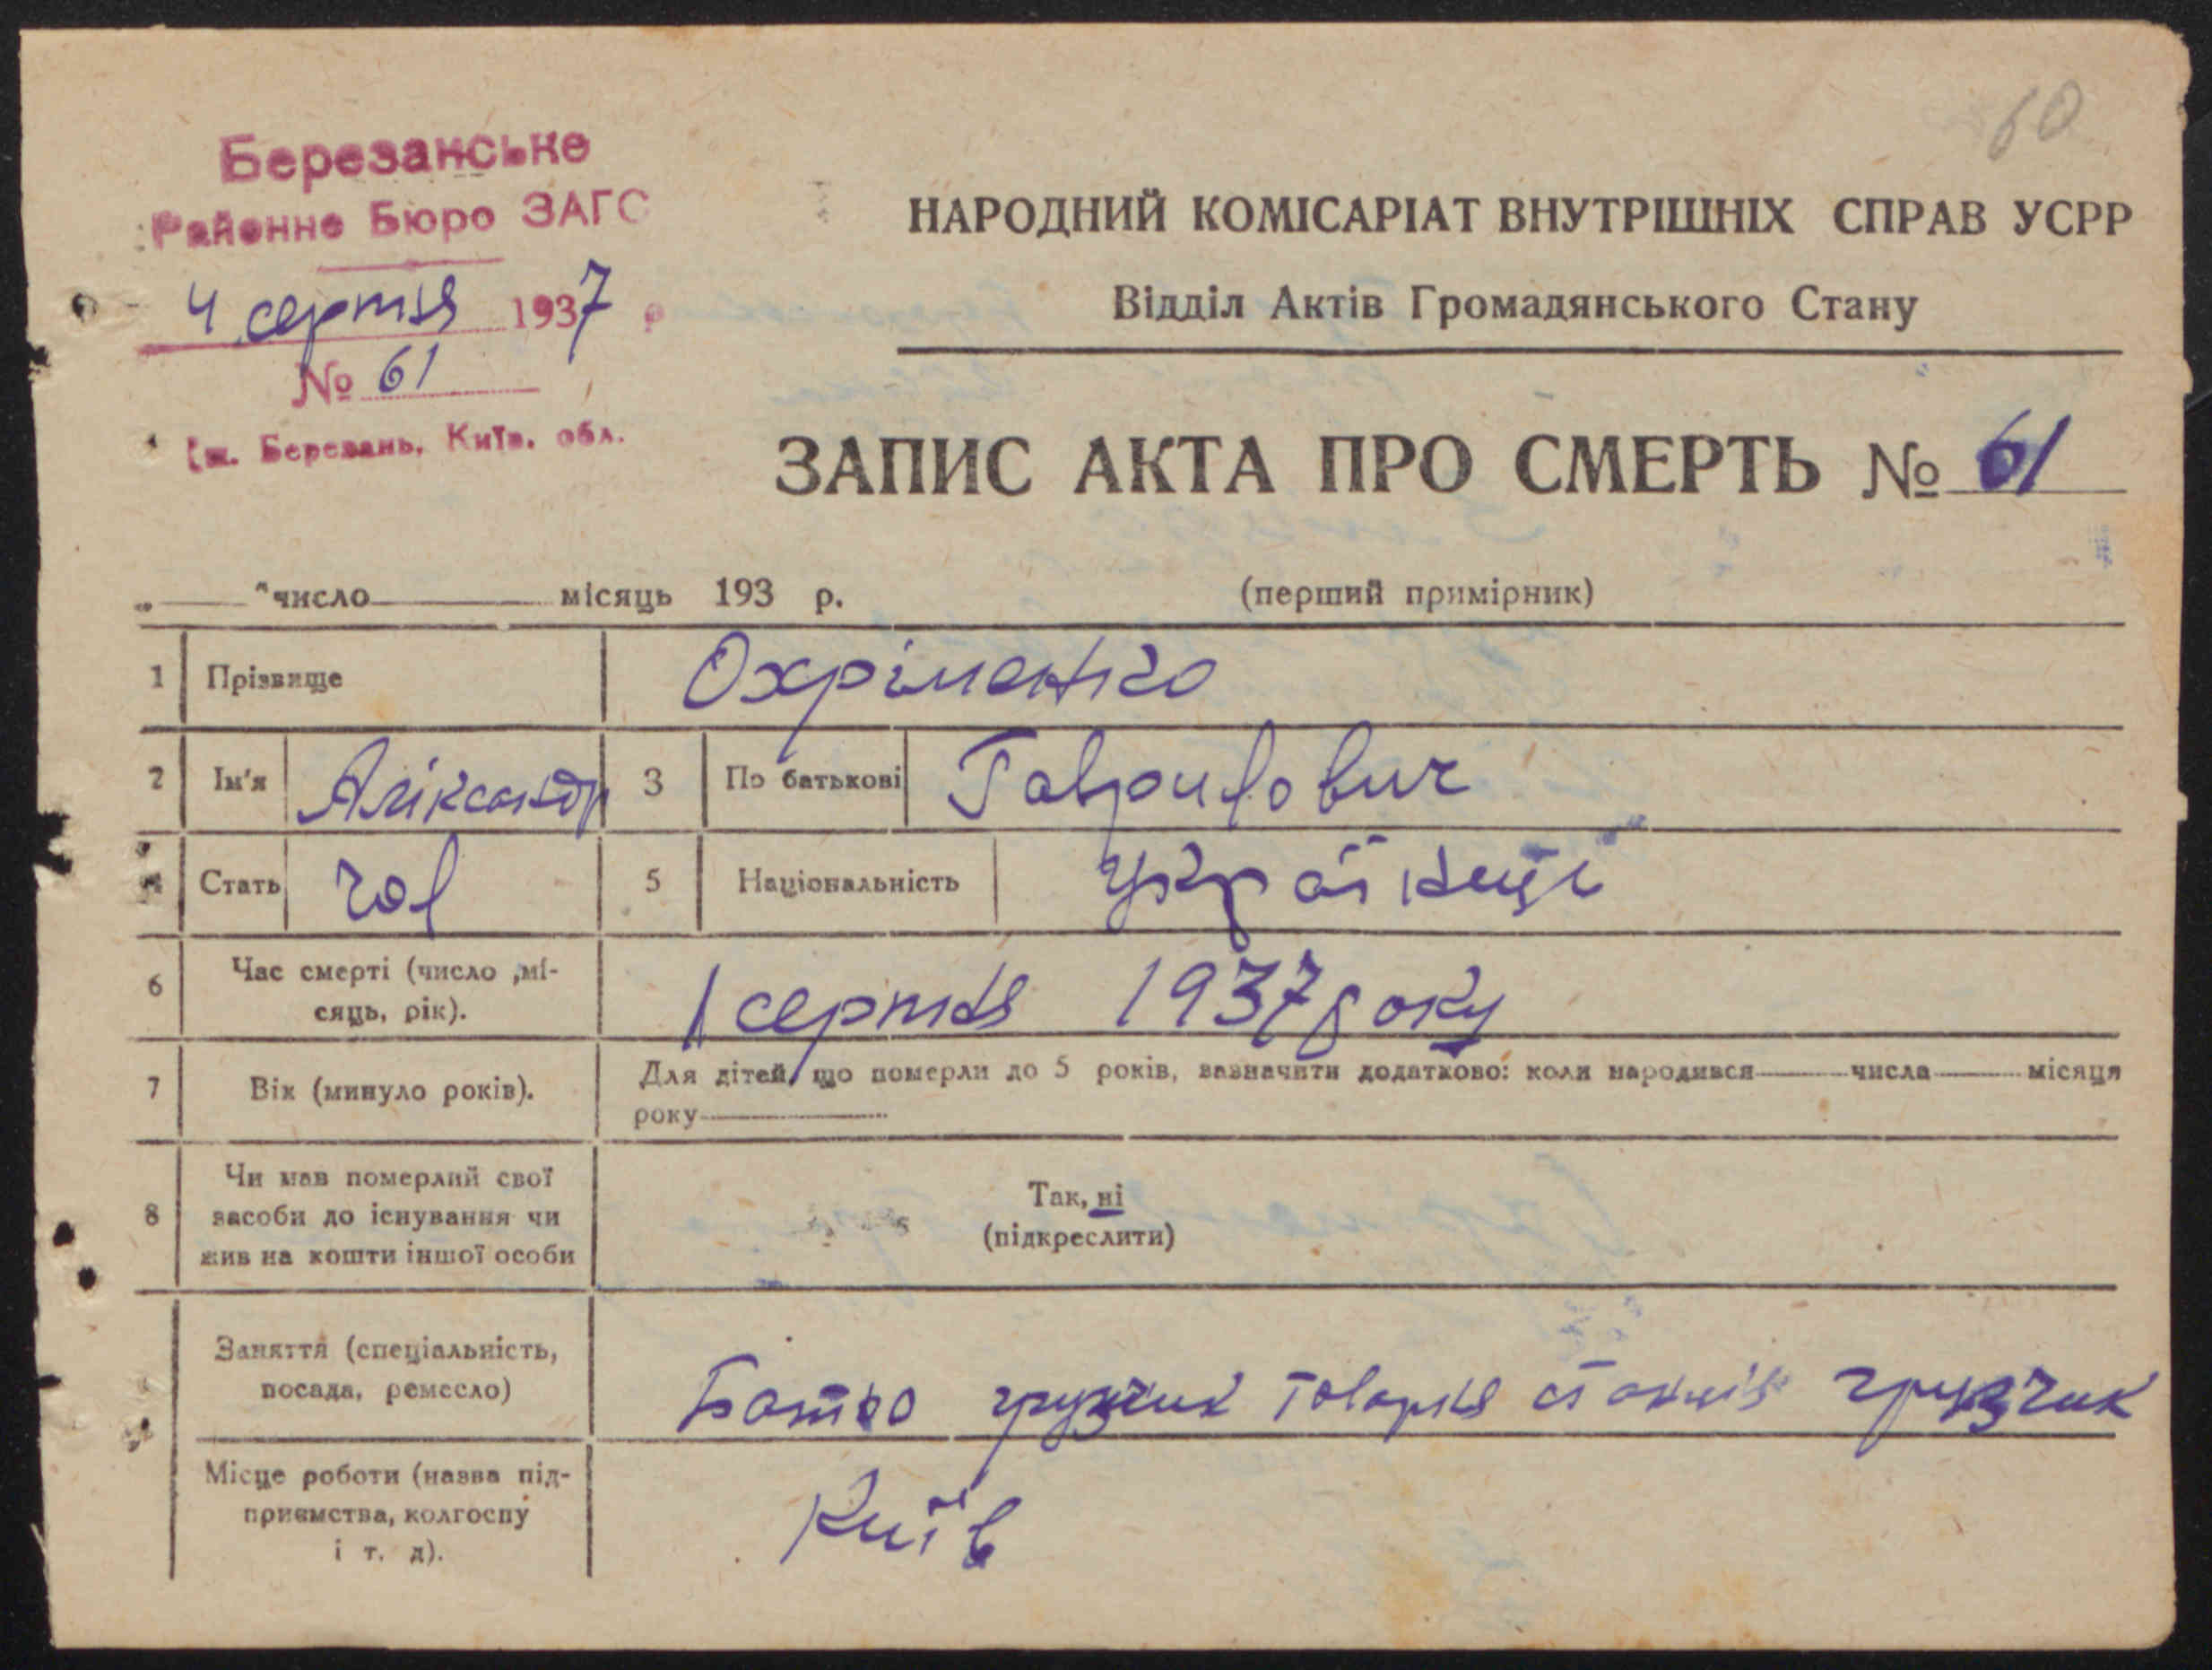 60
Березанське
Районне Бюро ЗАГС
4 серпня 1937 р
№ 61
м. Березань, Київ. обл.
НАРОДНИЙ КОМІСАРІАТ ВНУТРІШНІХ СПРАВ УСРР
Відділ Актів Громадянського Стану
ЗАПИС АКТА ПРО СМЕРТЬ № 61
„ “ число місяць 193 р. (перший примірник)
1 Прізвище Охріменко
2 Ім'я Аліксандр 3 По батькові Гаврилович
4 Стать чол 5 Національність Українці
6 Час смерті (число ,мі-
сяць, рік). 1 серпня 1937 року
7 Вік (минуло років). Для дітей, що померли до 5 років, зазначити додатково: коли народився числа місяця
року
8 Чи мав померлий свої
засоби до існування чи
жив на кошти іншої особи
Так, ні
(підкреслити)
Заняття (спеціальність,
посада, ремесло)
Батько грузчик товарня станція грузчик
Місце роботи (назва під-
приємства, колгоспу
і т. д).
Київ